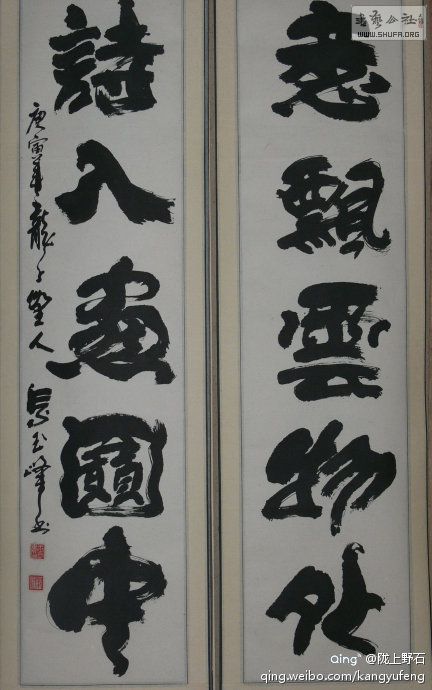 意飄雲物外
詩入畫圖中
庚寅年龍山野人
書藝公社
WWW.SHUFA.ORG
Qing @陇上野石
qing.weibo.com/kangyufeng